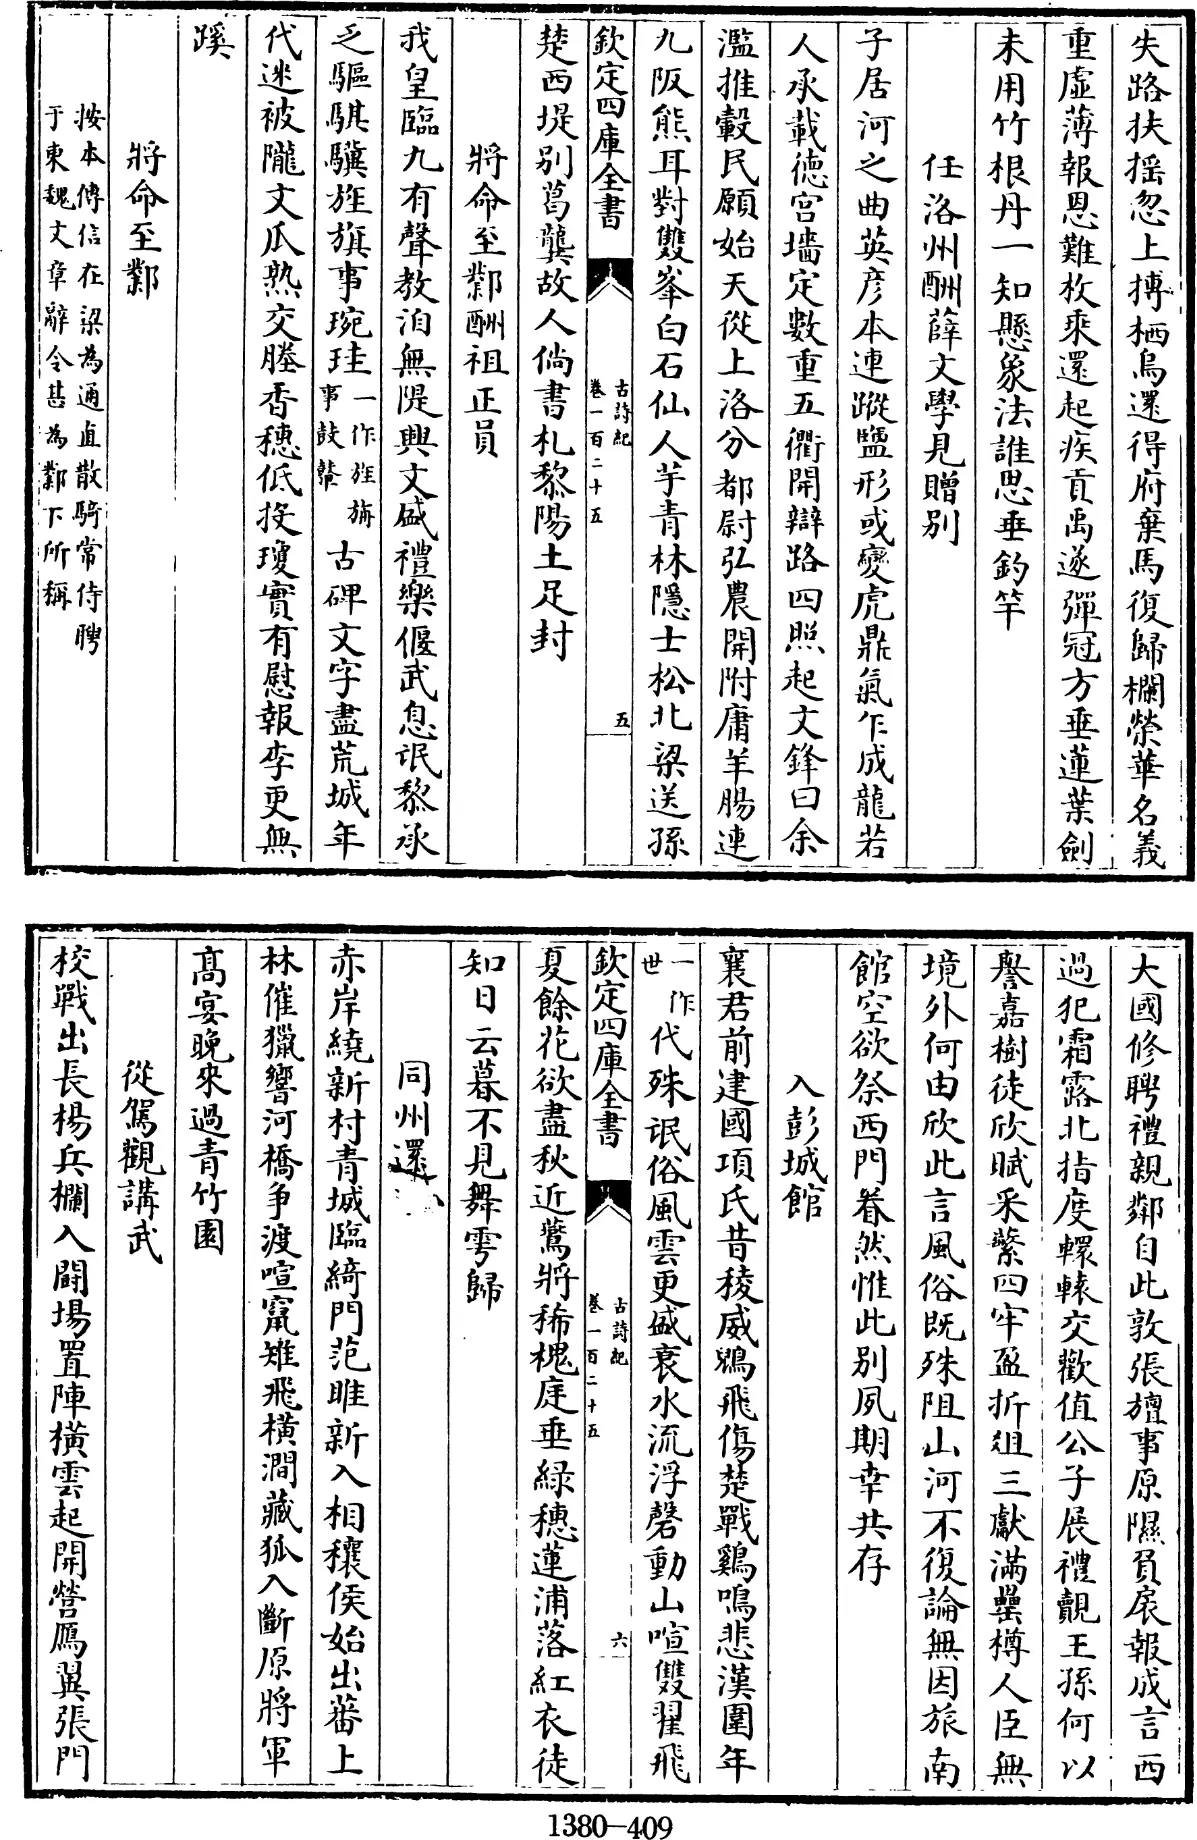 失路扶揺忽上摶栖烏還得府棄馬復歸欄榮華名義
重虛薄報恩難枚乘還起疾貢禹遂彈冠方垂蓮葉劍
未用竹根丹一知懸象法誰思垂釣竿
任洛州酬薛文學見贈别
子居河之曲英彦本連蹤鹽形或變虎鼎氣乍成龍若
人承載德宫墻定數重五衢開辯路四照起文鋒曰余
濫推轂民願始天從上洛分都尉弘農開附庸羊腸連
九阪熊耳對雙峯白石仙人芋青林隱士松北梁送孫
欽定四庫全書
古詩紀
卷一百二十五
五
楚西堤别葛龔故人倘書札黎陽土足封
將命至鄴酬祖正員
我皇臨九有聲教洎無隄興文盛禮樂偃武息氓黎承
乏驅騏驥旌旗事琬珪一作旌旃事鼓鼙古碑文字盡荒城年
代迷被隴文瓜熟交塍香穗低投瓊實有慰報李更無
蹊
將命至鄴
按本傳信在梁為通直散騎常侍聘
于東魏文章辭令甚為鄴下所稱
大國修聘禮親鄰自此敦張旜事原隰負扆報成言西
過犯霜露北指度轘轅交歡值公子展禮覿王孫何以
譽嘉樹徒欣賦采蘩四牢盈折俎三獻滿罍樽人臣無
境外何由欣此言風俗既殊阻山河不復論無因旅南
館空欲祭西門眷然惟此别夙期幸共存
入彭城館
襄君前建國項氏昔稜威鶂飛傷楚戰鷄鳴悲漢圍年
一作世代殊氓俗風雲更盛衰水流浮磬動山喧雙翟飛
欽定四庫全書
古詩紀
卷一百二十五
六
夏餘花欲盡秋近鷰將稀槐庭垂緑穗蓮浦落紅衣徒
知日云暮不見舞雩歸
同州還
赤岸繞新村青城臨綺門范雎新入相穰侯始出蕃上
林催獵響河橋争渡喧竄雉飛横澗藏狐入斷原將軍
髙宴晚來過青竹園
從駕觀講武
校戰出長楊兵欄入鬭場置陣横雲起開營鴈翼張門
1380-409